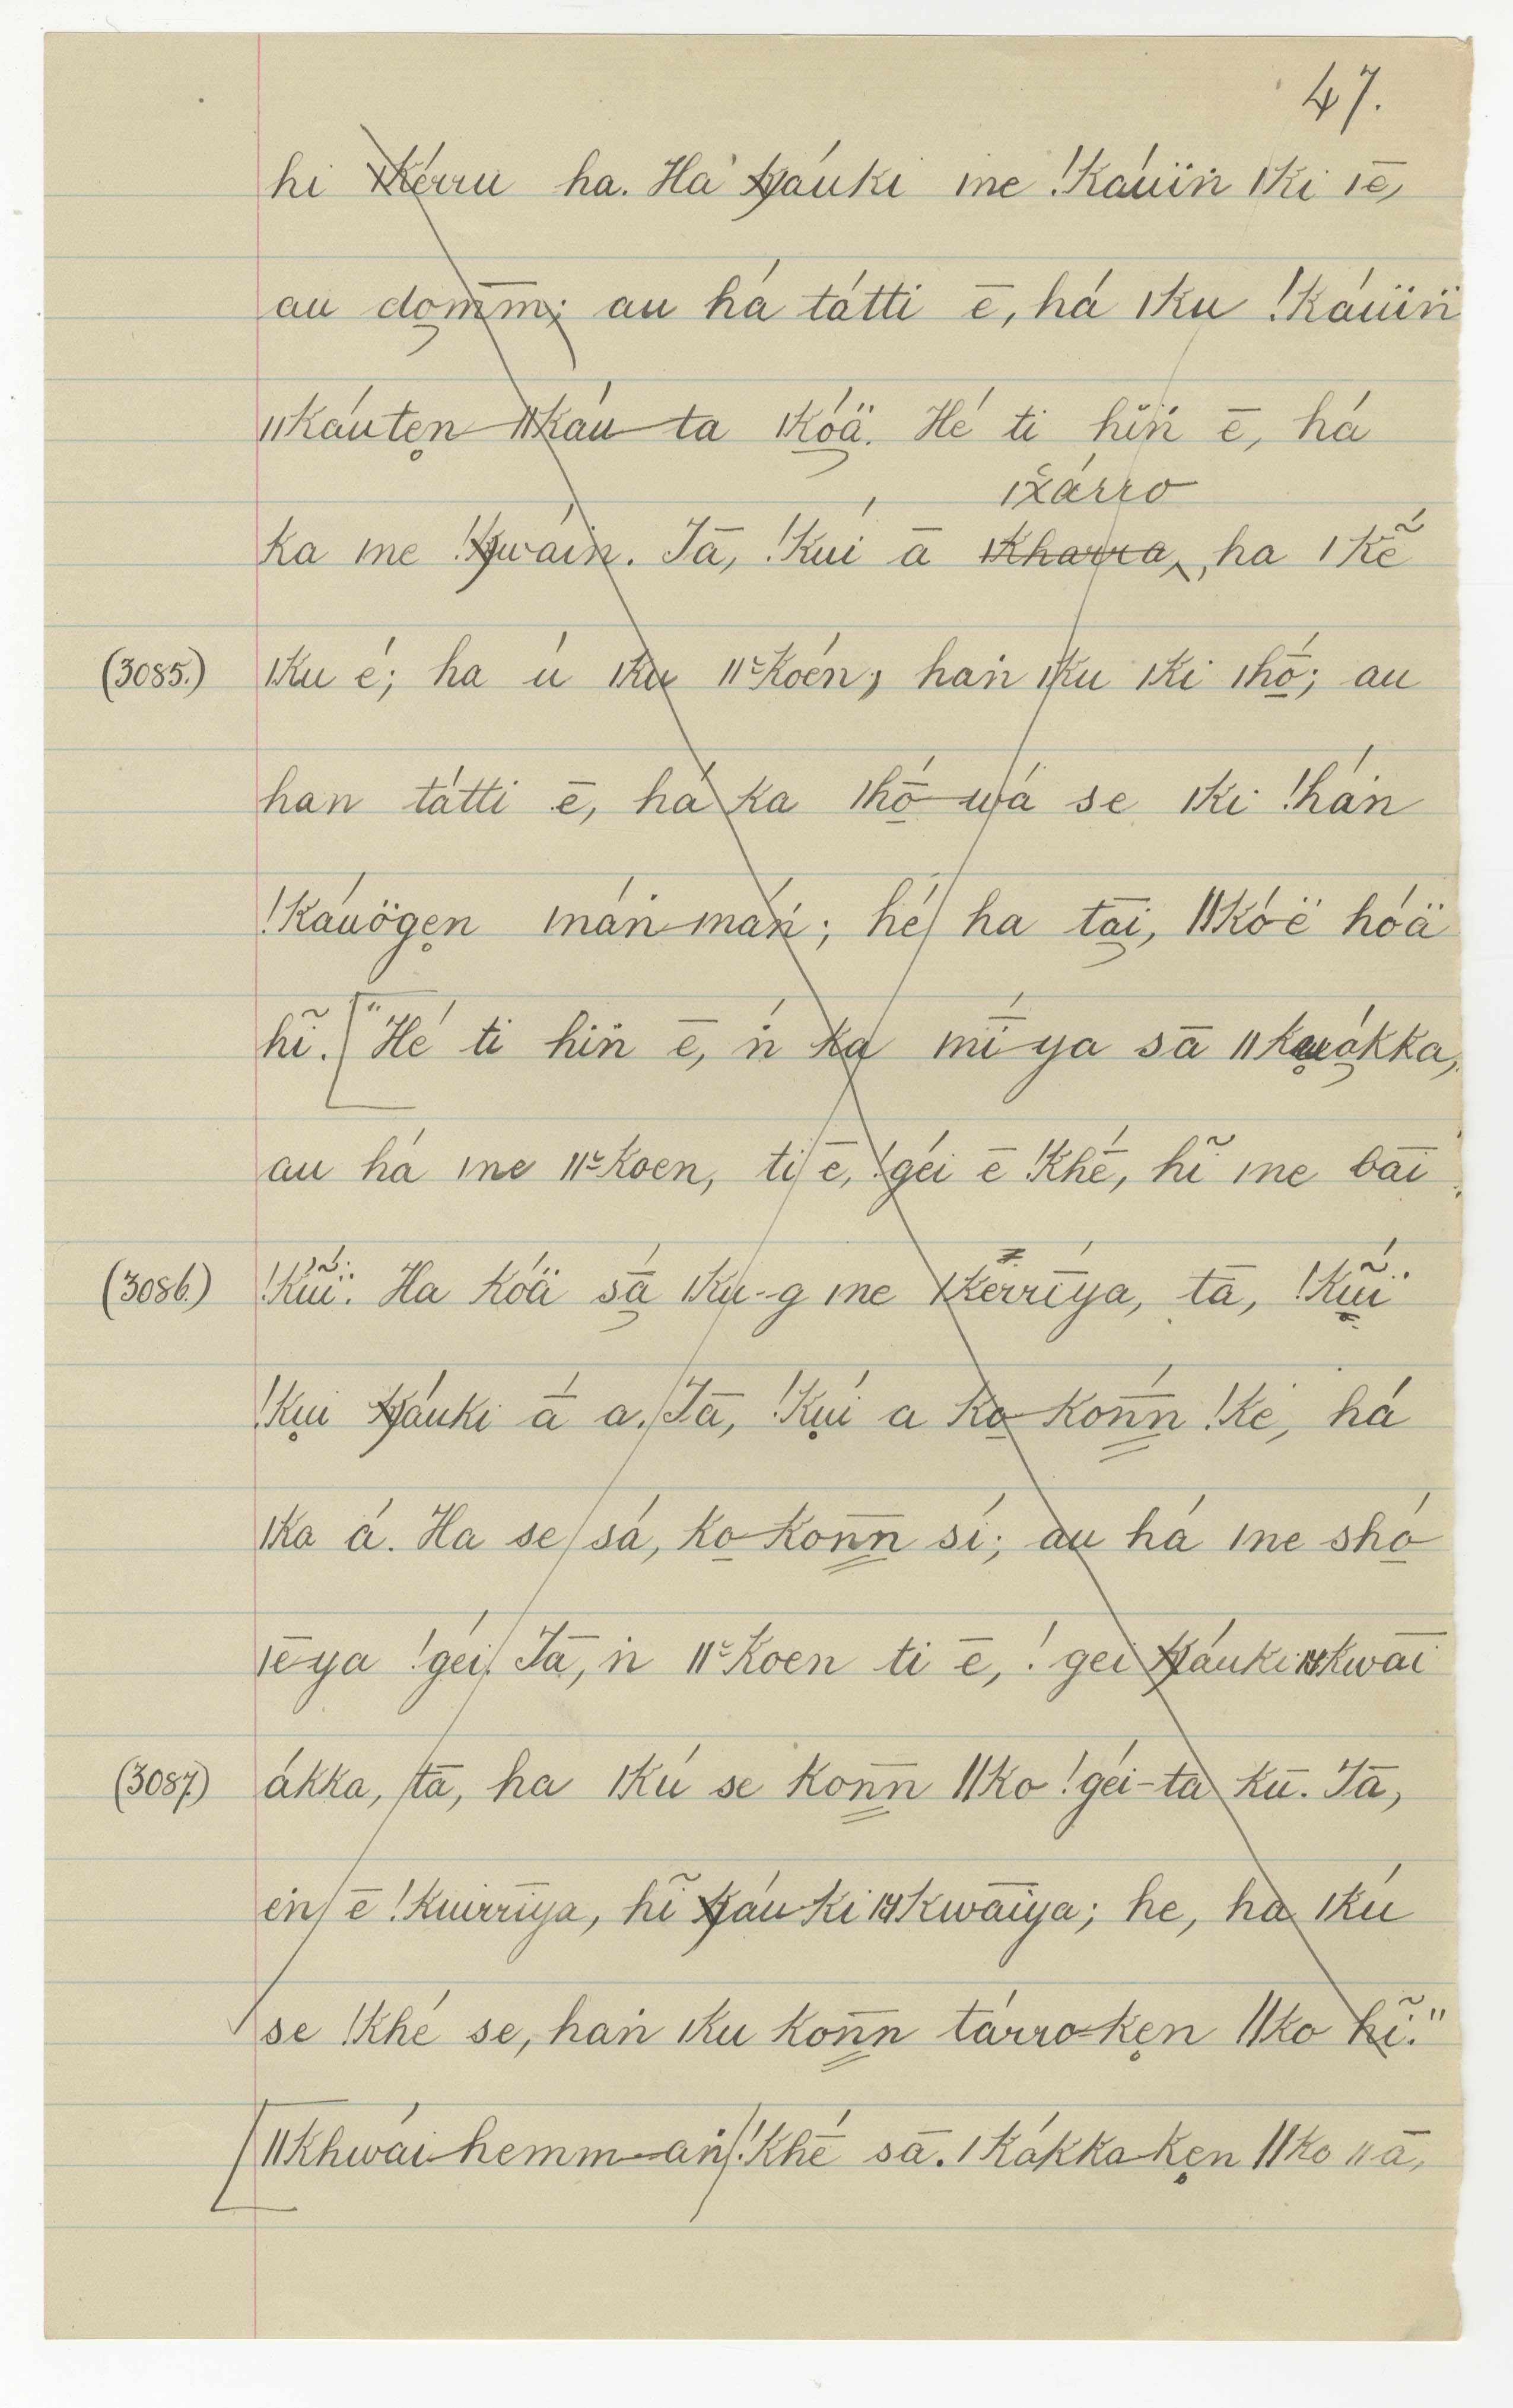 47.
hi ǀkérru ha. Há χáuki ǀne !káuïṅ ǀki ǀē,
au do̰m̄m; au há tátti ē, há ǀku !káuïn̈
ǁkáuten̥ ǁkáu ta ǀkó̱ä. Hé ti hĭn̈ ē, há
ǀχárro
ka ǀne !χwáin. Tā, !kuí ā ǀkharra, ha ǀkḗ̃
(3085.) ǀku é; ha ú ǀku ǁkoén; haṅ ǀku ǀki ǀhṓ̱; au
han tátti ē, há ka ǀhṓ̱ wá se ǀki !háṅ
!káuögen̥ máṅ-máṅ; hé ha tā̱i, ǁkó-ë hóä
hĩ. ["Hé ti hin̈ ē, ṅ ka mī́-ya sā ǁkuákka,
au há ǀne ǁkoen, ti ē, !géi ē !khḗ, hĩ ǀne bāi
(3086.) !kuï. Ha kóä sā́ ǀku-g ǀne ǀkérrīya, tā, !kuï
!ku̥i χáuki ā́ a. Tā, !ku̥í a ko̱-kon̄n !ké, há
ǀka á. Ha se sá, ko̱-kon̄n sí; au há ǀne shó̱
ǀēya !géi. Tā, ṅ ǁkoen ti ē, !gei χáuki ǀkwāi
(3087.) ákka, tā, ha ǀkú se kon̄n ǁko !géi-ta kū. Tā,
eṅ ē !kuirrīya, hĩ χáu-ki ǀkwāiya; he, ha ǀkú
se !khé se, haṅ ǀku kon̄n tárro-ken̥ ǁko hĩ."
[ǁkhwái-hemm-aṅ !khḗ sā. ǀkákka-ken̥ ǁko ǁā,